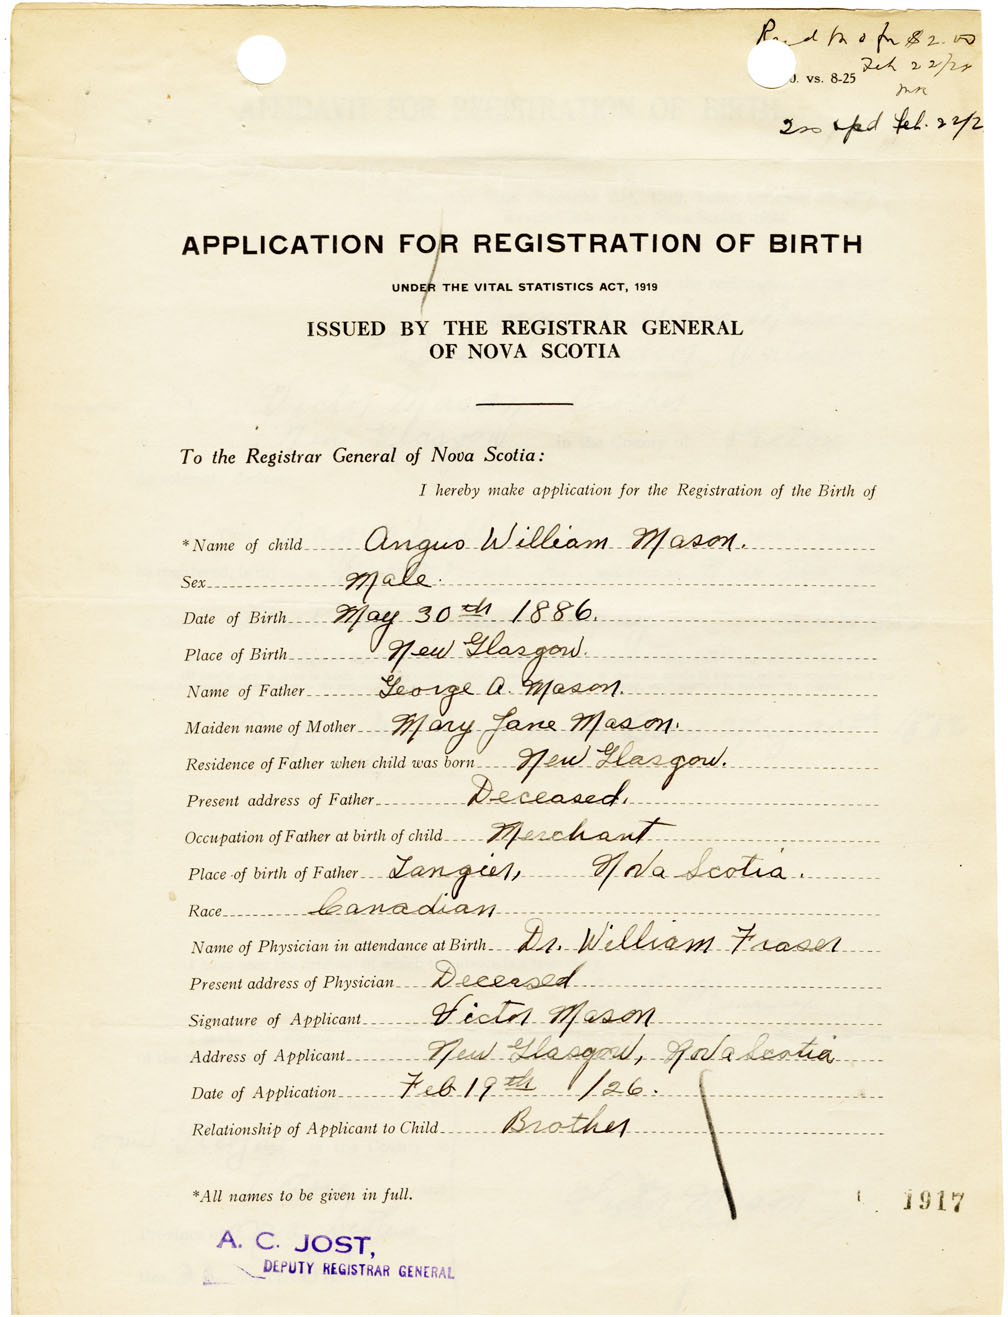 for $2.00
Feb 22/26
J. vs. 8-25
Feb. 22/2
APPLICATION FOR REGISTRATION OF BIRTH
UNDER THE VITAL STATISTICS ACT, 1919
ISSUED BY THE REGISTRAR GENERAL
OF NOVA SCOTIA
To the Registrar General of Nova Scotia:
I hereby make application for the Registration of the Birth of
*Name of child Angus William Mason.
Sex Male.
Date of Birth May 30th 1886.
Place of Birth New Glasgow.
Name of Father George A. Mason.
Maiden name of Mother Mary Jane Mason.
Residence of Father when child was born New Glasgow.
Present address of Father Deceased.
Occupation of Father at birth of child Merchant
Place of birth of Father Tangier, Nova Scotia.
Race Canadian
Name of Physician in attendance at Birth Dr. William Fraser
Present address of Physician Deceased
Signature of Applicant Victor Mason
Address of Applicant New Glasgow, Nova Scotia
Date of Application Feb 19th /26.
Relationship of Applicant to Child Brother
*All names to be given in full.
1917
A. C. JOST,
DEPUTY REGISTRAR GENERAL